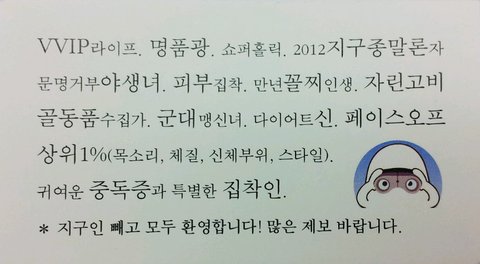 VVIP라이프. 명품광. 쇼퍼홀릭. 2012지구종말론자
문명거부야생녀. 피부집착. 만년꼴찌인생. 자린고비
골동품수집가. 군대맹신녀. 다이어트신. 페이스오프
상위1%(목소리, 체질, 신체부위, 스타일).
귀여운 중독증과 특별한 집착인.
* 지구인 빼고 모두 환영합니다! 많은 제보 바랍니다.